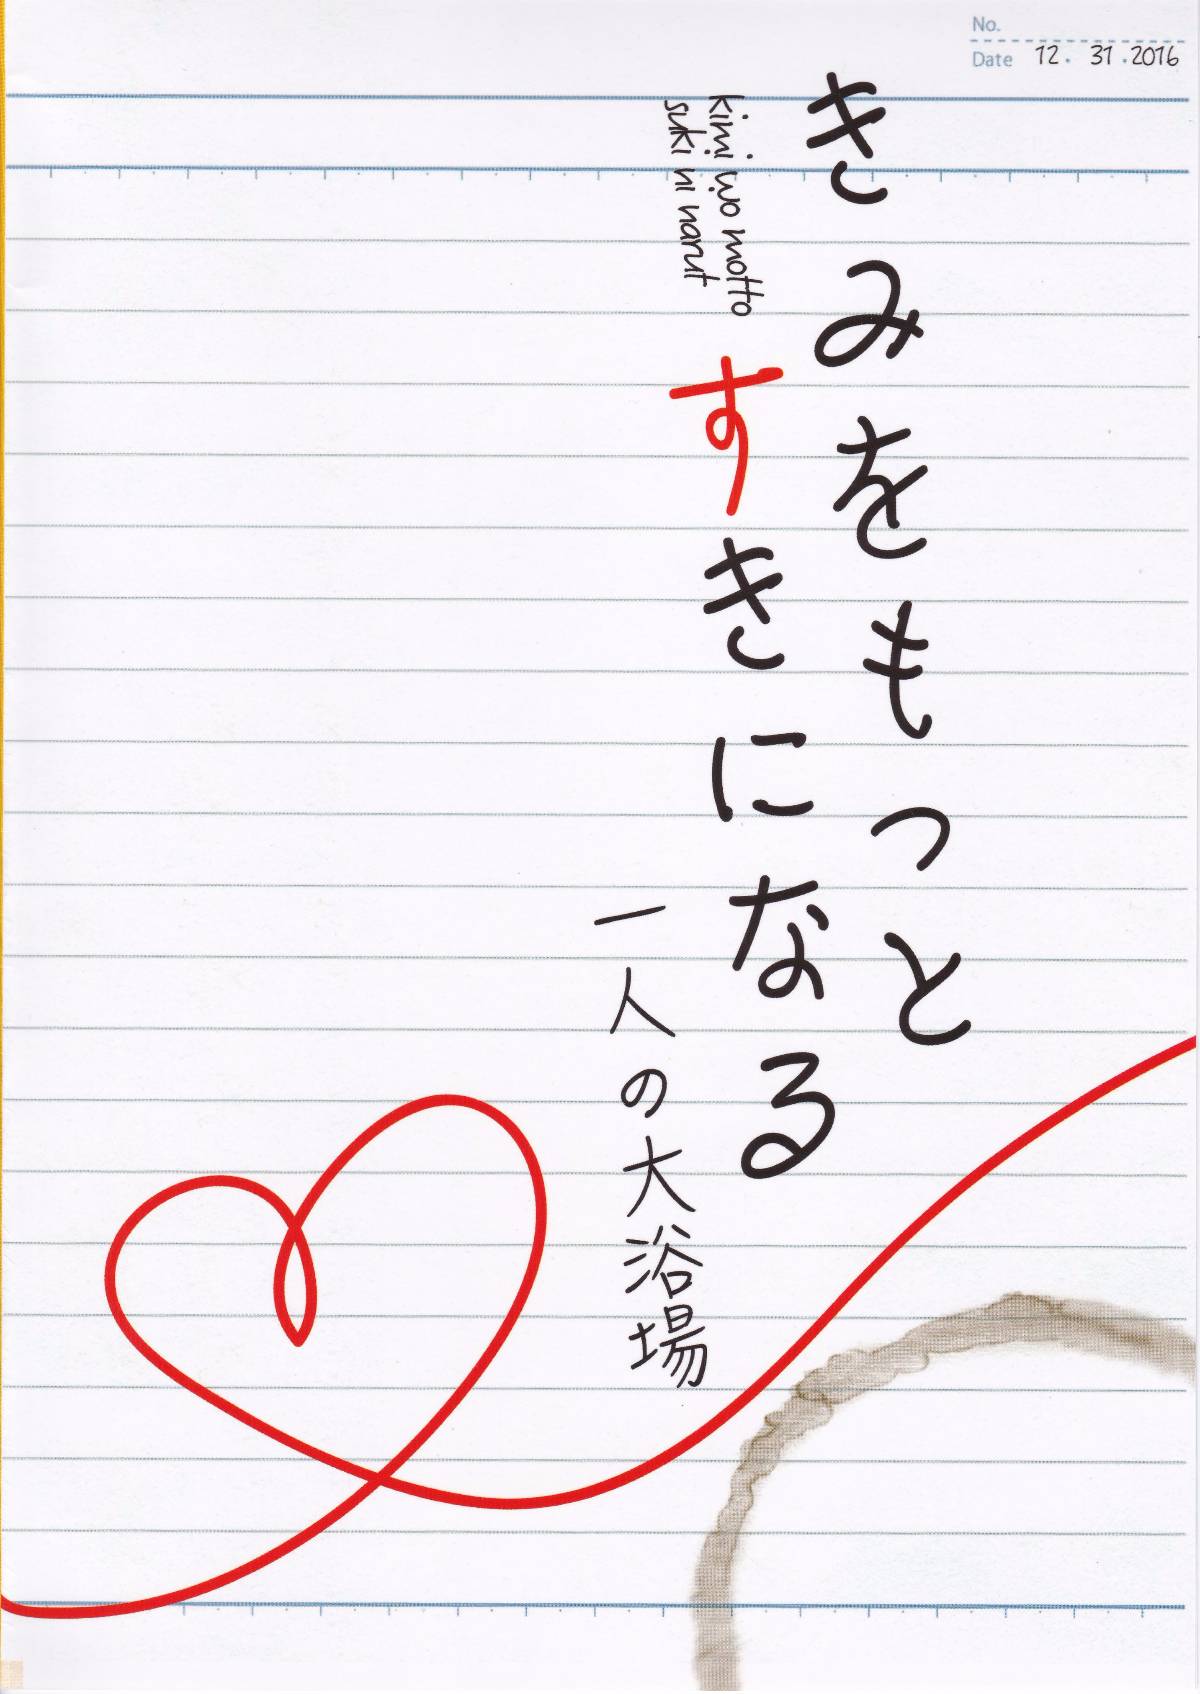 No.
Date 12. 31 .2016
きみをもっと
kimi wo motto
suki ni narut
すきになる
一人の大浴場